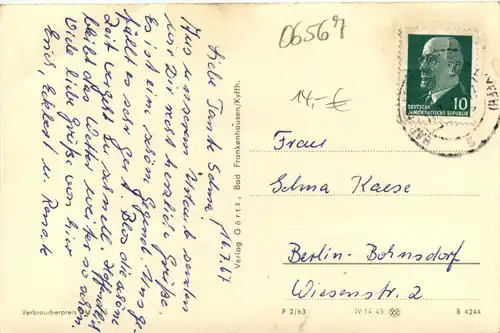 06569
14,-€
DEUTSCHE
DEMOKRATISCHE REPUBLIK
10
16.7.67
Liebe Tante Selma!
Aus unserem Urlaub senden
wir Dir recht herzliche Grüße.
Es ist eine schöne Gegend. Uns ge-
fällt es sehr gut. Blos die schöne
Zeit vergeht zu schnell. Hoffentlich
bleibt das Wetter weiter so schön.
Viele liebe Grüße von hier
Erich, Eckbert u. Renate
Verlag Görtz, Bad Frankenhausen/Kyffh.
Frau
Selma Kaese
Berlin-Bohnsdorf
Wiesenstr. 2
Verbraucherpreis
P 2/63
IV-14-45
B 4244